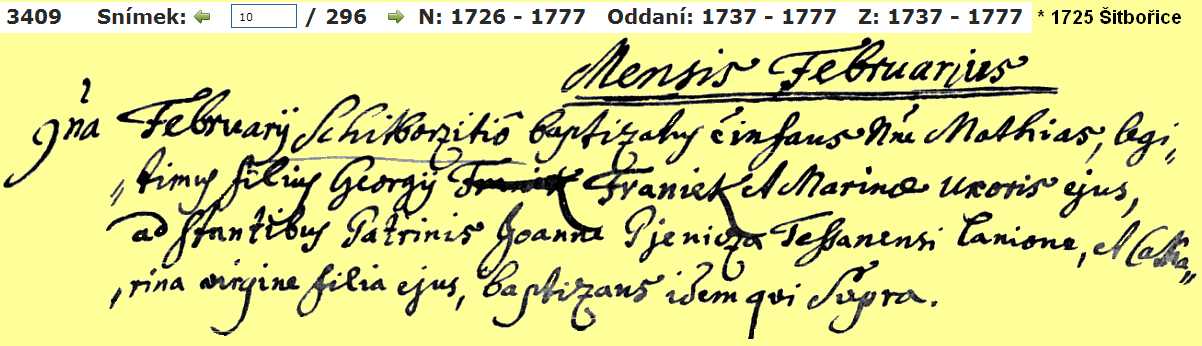 3409 Snímek: 10 / 296 N: 1726 - 1777 Oddaní: 1737 - 1777 Z: 1737 - 1777 * 1725 Šitbořice
Mensis Februarius
9na Februarij Schitborzitio baptizatus e infans Nne Mathias, legi„
„timus filius Georgij Franiek Franiek et Marinæ uxoris ejus,
ad stantibus Patrinis Joanne Pjenicza Tessanensi Lanione, et Catha„
„rina virgine filia ejus, baptizans idem qvi supra.